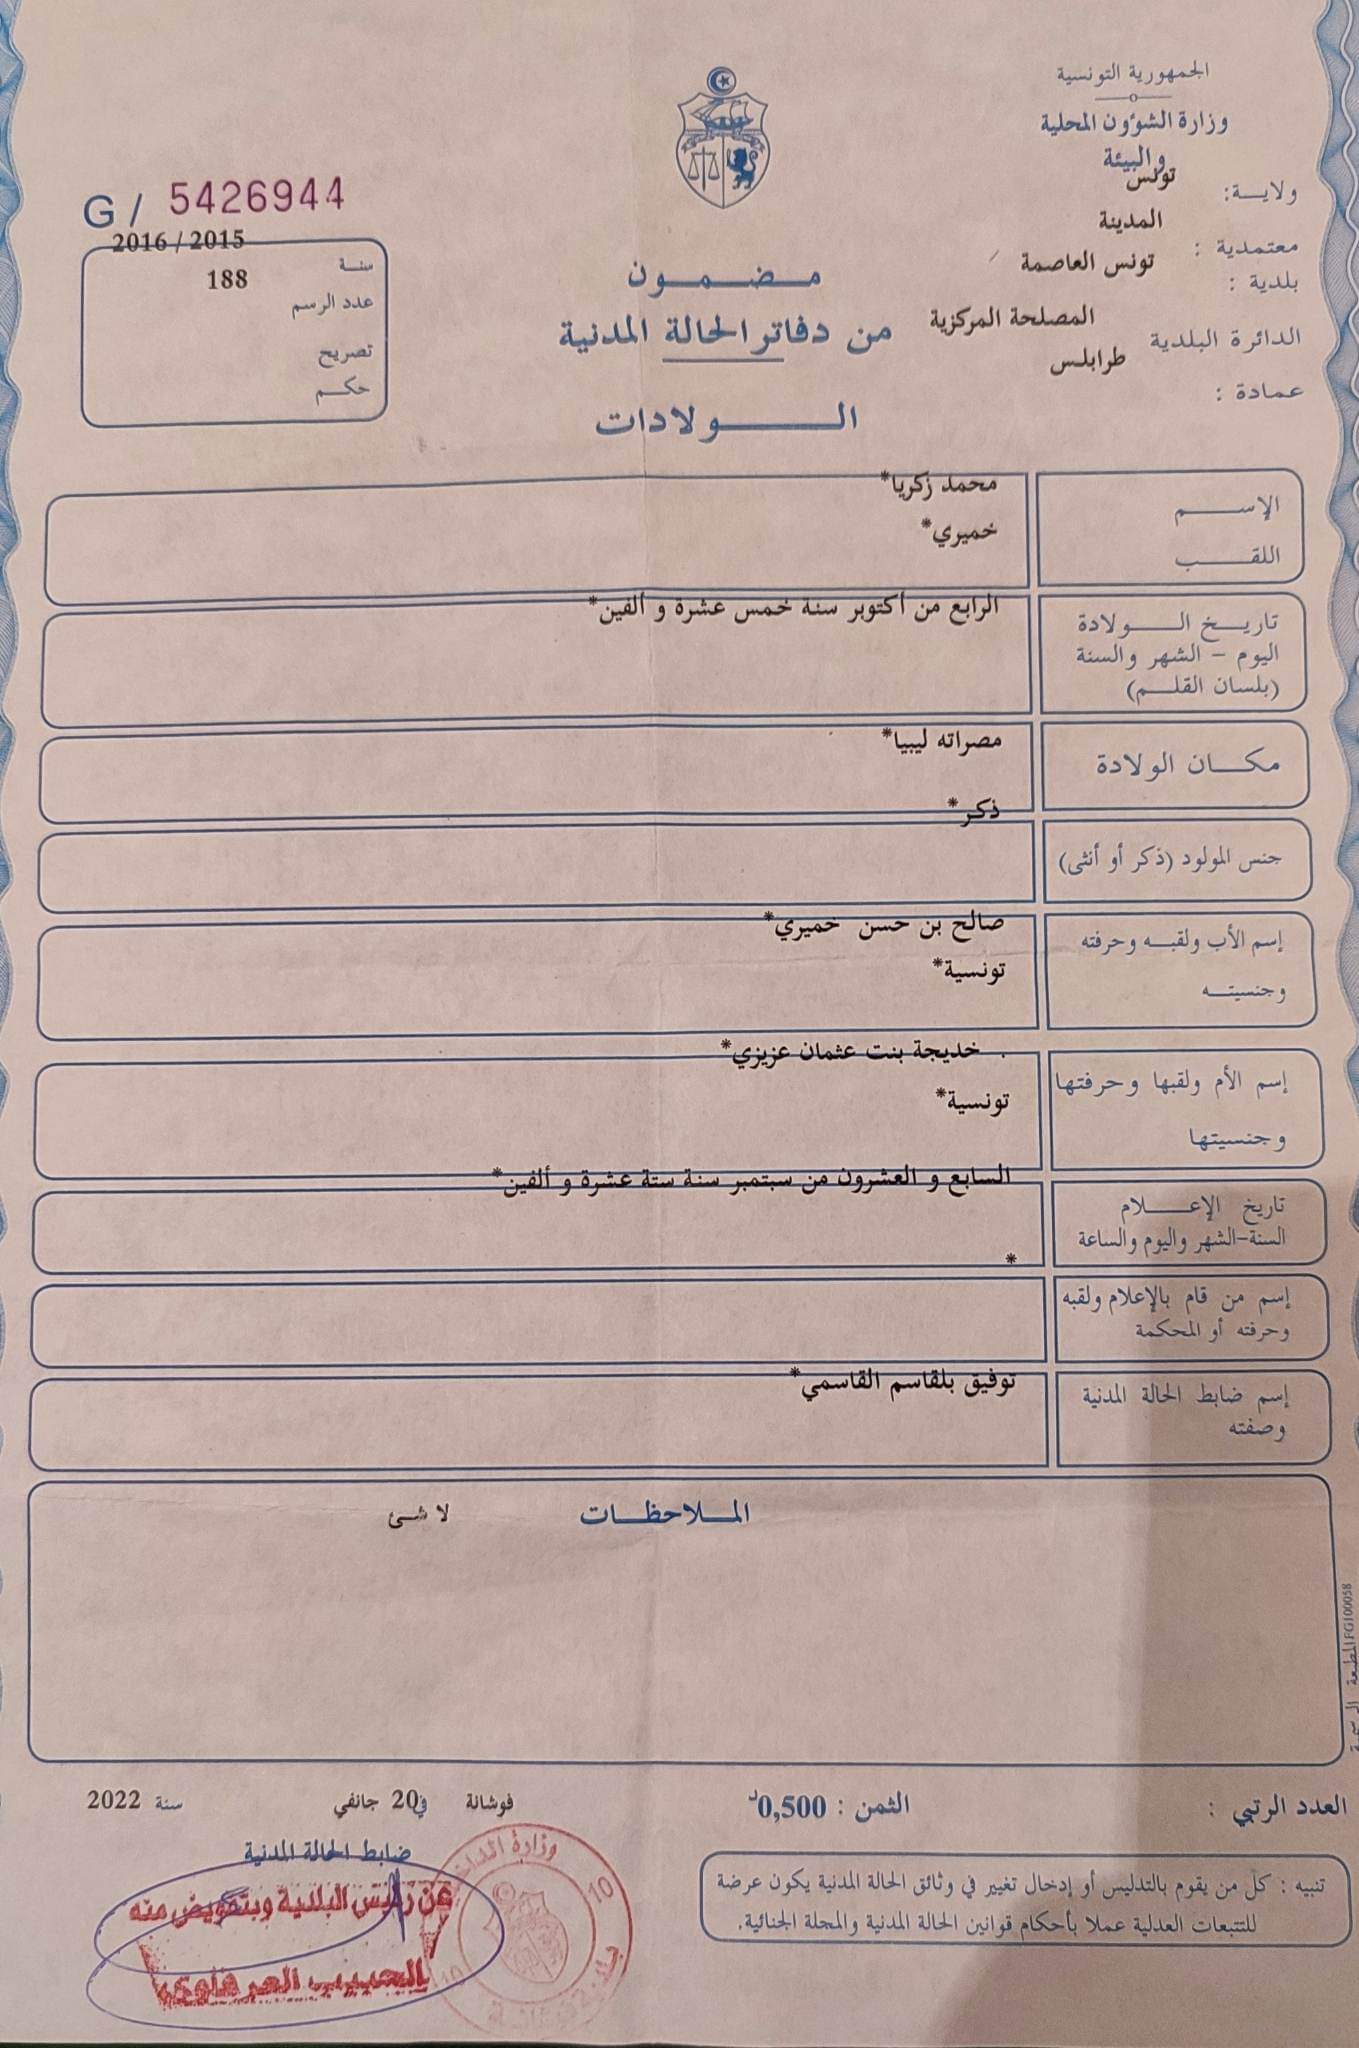 الجمهورية التونسية
وزارة الشؤون المحلية
والبيئة
ولايــة: تونس
معتمدية : المدينة
بلدية : تونس العاصمة
الدائرة البلدية المصلحة المركزية
عمادة : طرابلس
مـضـمـون
من دفاتر الحالة المدنية
الـولادات
G / 5426944
سنة 2016 / 2015
عدد الرسم 188
تصريح
حكم
الإسـم محمد زكريا*
اللقـب خميري*
تاريـخ الـولادة الرابع من أكتوبر سنة خمس عشرة و ألفين*
اليوم – الشهر والسنة
(بلسان القلـم)
مكـان الولادة مصراته ليبيا*
جنس المولود (ذكر أو أنثى) ذكر*
إسم الأب ولقبـه وحرفته صالح بن حسن خميري*
وجنسيتـه تونسية*
إسم الأم ولقبها وحرفتها . خديجة بنت عثمان عزيزي*
وجنسيتها تونسية*
تاريخ الإعـلام السابع و العشرون من سبتمبر سنة ستة عشرة و ألفين*
السنة-الشهر واليوم والساعة
إسم من قام بالإعلام ولقبه *
وحرفته أو المحكمة
إسم ضابط الحالة المدنية توفيق بلقاسم القاسمي*
وصفته
الملاحظات لا شئ
المطبعة الرسمية FG100058
العدد الرتبي : الثمن : 0,500د
فوشانة في 20 جانفي سنة 2022
ضابط الحالة المدنية
عن رئيس البلدية وبتفويض منه
الحبيب
وزارة الداخلية
10
10
تنبيه : كل من يقوم بالتدليس أو إدخال تغيير في وثائق الحالة المدنية يكون عرضة
للتتبعات العدلية عملا بأحكام قوانين الحالة المدنية والمجلة الجنائية.